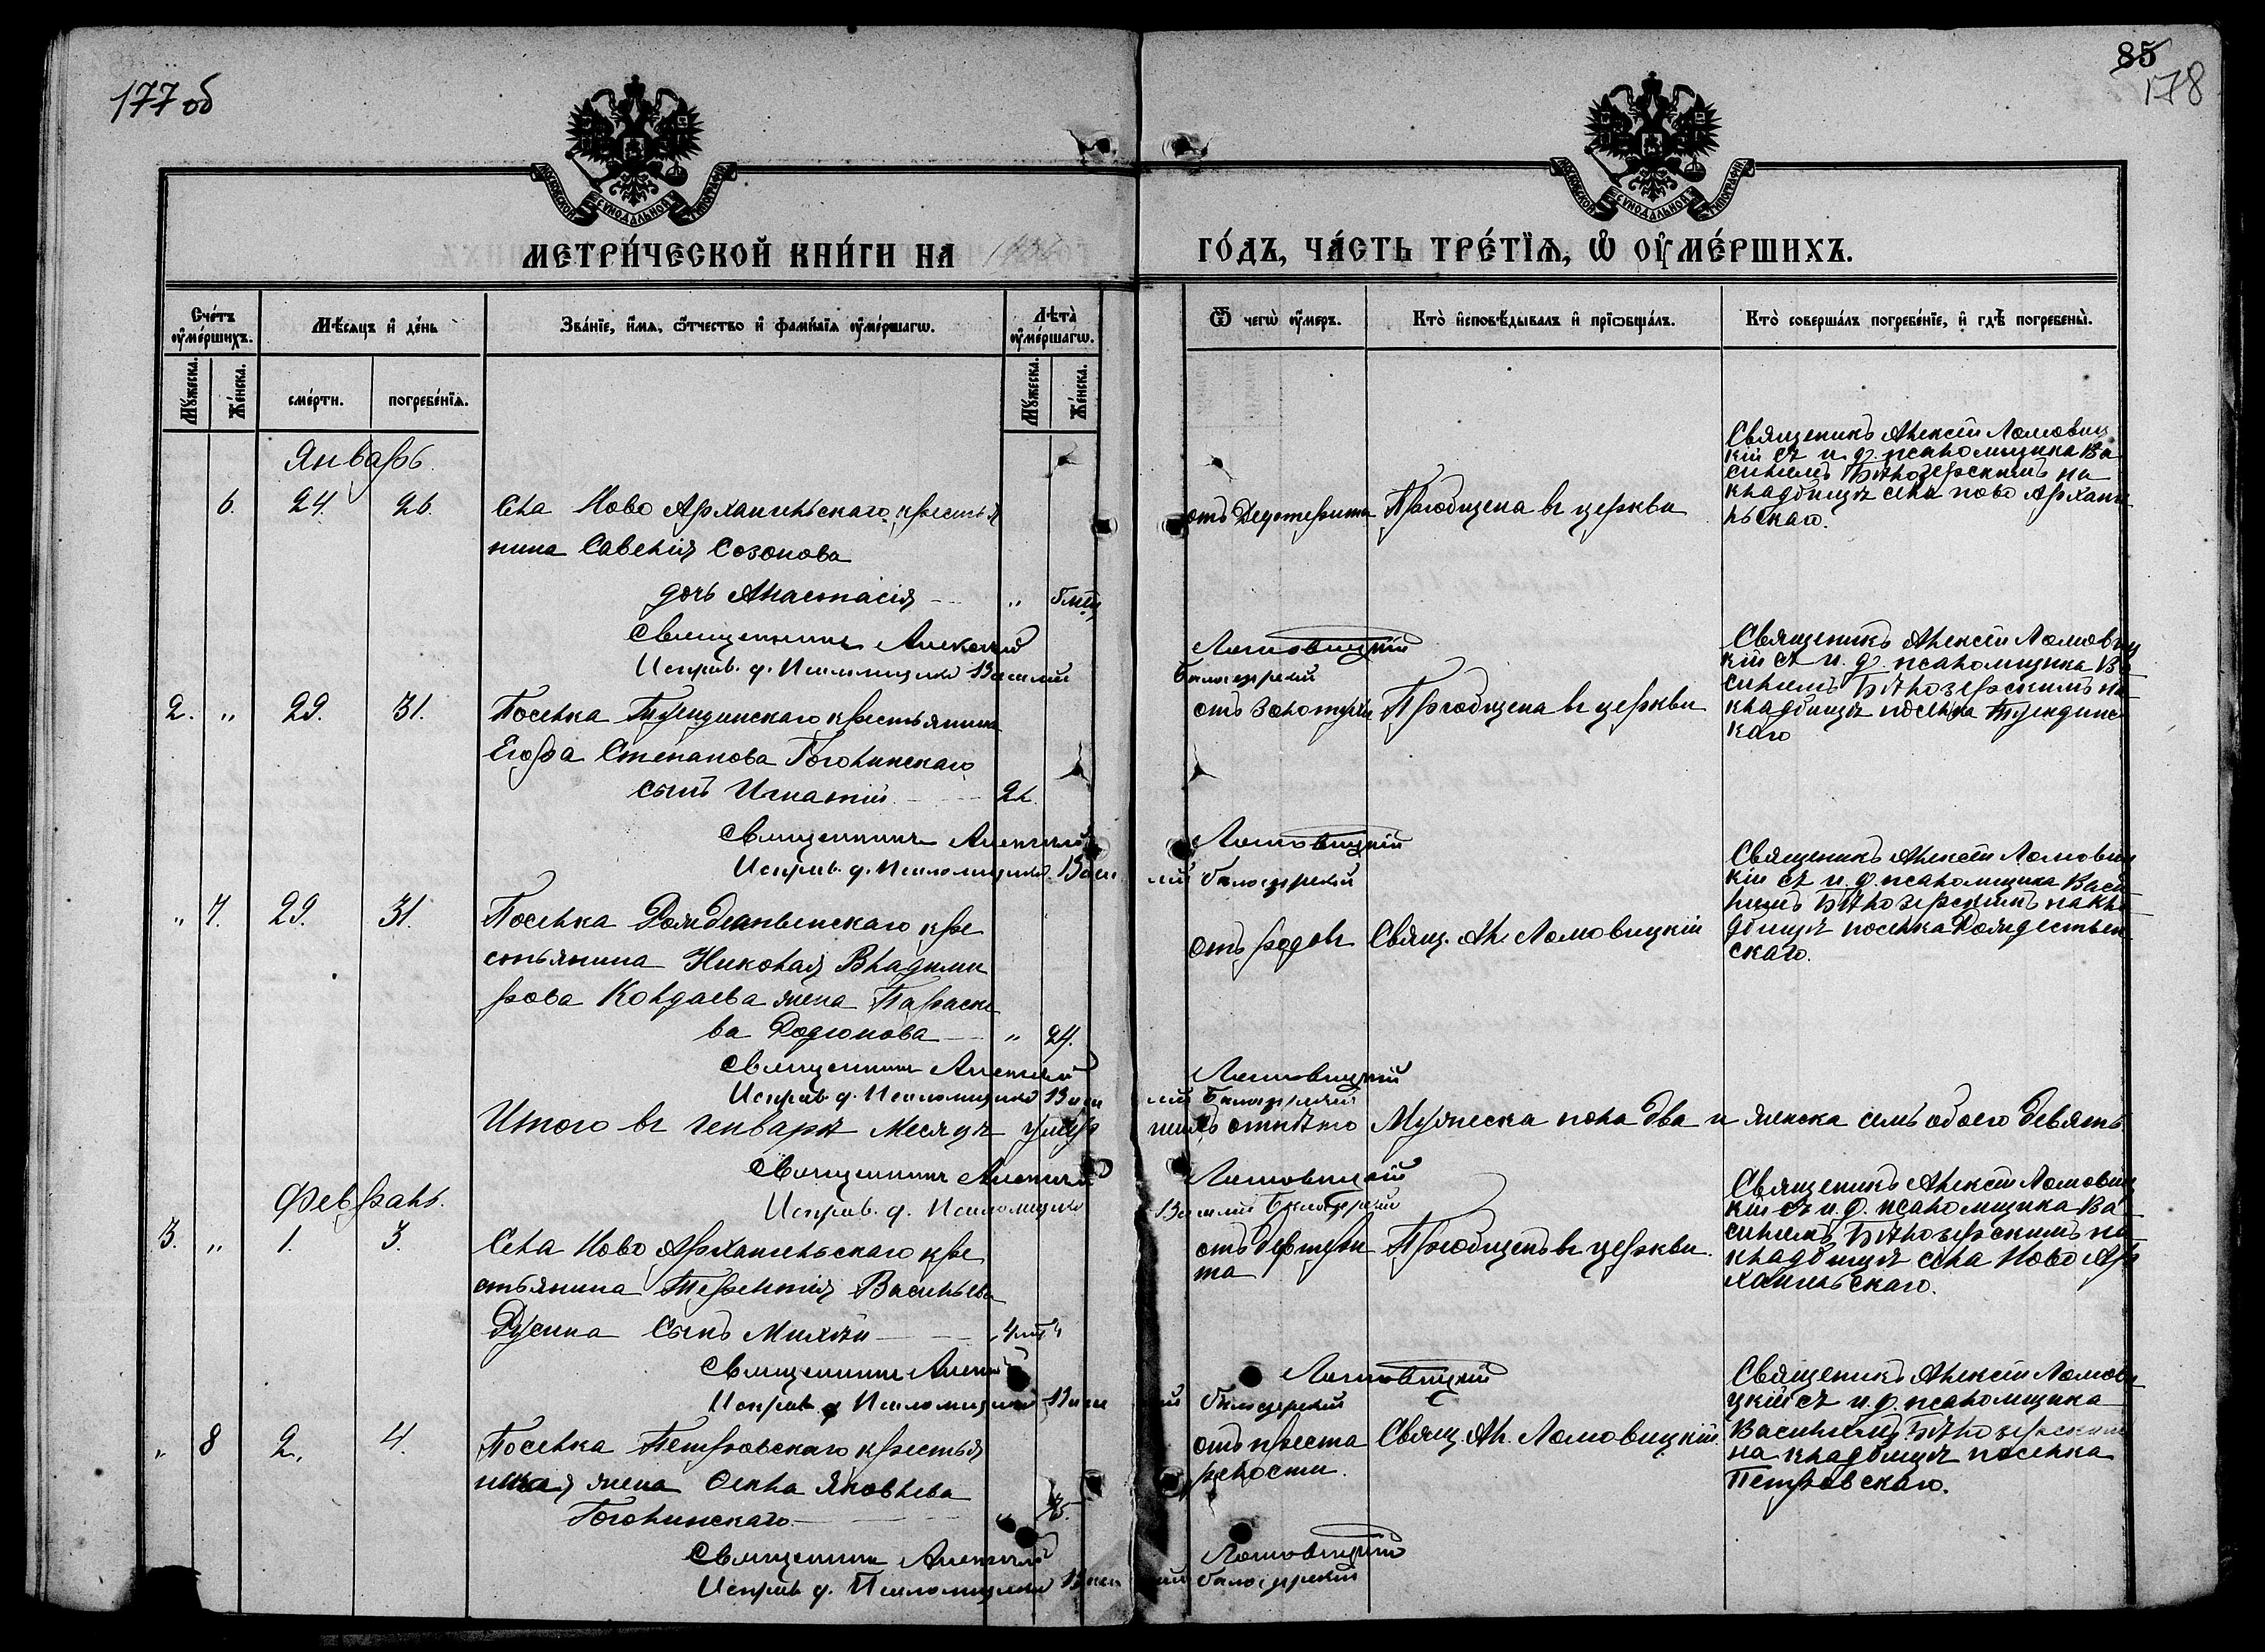 177 об
85
178
МОСКОВСКОЙ СѴНОДАЛЬНОЙ ТИПОГРАФІИ
МОСКОВСКОЙ СѴНОДАЛЬНОЙ ТИПОГРАФІИ
МЕТРИ́ЧЕСКОЙ КНИ́ГИ НА
ГО́ДЪ, ЧА́СТЬ ТРЕ́ТІѦ, Ѡ҆ ОУ҆МЕ́РШИХЪ.
Сче́тъ ᲂу҆ме́ршихъ.
Мѣ́сѧцъ и҆ де́нь
Зва́нїе, и҆́мѧ, ѻ҆́тчество и҆ фамѝлїѧ ᲂу҆ме́ршагѡ.
Лѣта̀ ᲂу҆ме́ршагѡ.
Ѿ чегѡ̀ ᲂу҆́меръ.
Кто̀ и҆сповѣ́дывалъ и҆ прїѡбща́лъ.
Кто̀ соверша́лъ погребе́нїе, и҆ гдѣ̀ погребены̀.
Мꙋ́жеска.
Же́нска.
сме́рти.
погребе́нїѧ.
Мꙋ́жеска.
Же́нска.
Январь.
6. 24. 26. Села Ново Архангельскаго крестья
нина Савелія Созонова
дочь Анастасія - „
отъ
Пріобщена въ церкви
Священикъ Алексій Ломовиц
кій съ и. д. псаломщика Ва
силіемъ Бѣлозерскимъ на
кладбищѣ села ново Арханге
льскаго.
Священникъ Алексій Ломовицкій
Исправ. д. Псаломщика Василій Белозерскій
2. „ 29. 31. Поселка крестьянина
Егора Степанова Гоголинскаго
сынъ Игнатій - 2
отъ Золотухи
Пріобщена въ церкви
Священикъ Алексій Ломовиц
кій съ и. д. псаломщика Ва
силіемъ Бѣлозерскимъ на
кладбищѣ поселка
каго
Священникъ Алексій Ломовицкій
Исправ. д. Псаломщика Василій Белозерскій
„ 7. 29. 31. Поселка Рождественскаго кре
стьянина Николая Владими
рова Колдаева жена Параске
ва Родионова - „ 24.
отъ родовъ
Свящ. Ал. Ломовицкій
Священикъ Алексій Ломовиц
кій съ и. д. псаломщика Васи
ліемъ Бѣлозерскимъ на кла
дбищѣ поселка Рождествен
скаго.
Священникъ Алексій Ломовицкій
Исправ. д. Псаломщика Василій Белозерскій
Итого въ генварѣ месяцѣ умерших отпѣто Мужеска пола два и женска семь обоего девять
Священникъ Алексій Ломовицкій
Исправ. д. Псаломщика Василій Белозерскій
Февраль.
3. „ 1. 3. Села Ново Архангельскаго кре
стьянина Терентія Васильева
Русина Сынъ Михаи -
отъ
та
Пріобщенъ въ церкви.
Священикъ Алексій Ломовиц
кій съ и. д. псаломщика Ва
силіемъ Бѣлозерскимъ на
кладбищѣ села Ново Ар
хангельскаго.
Священникъ Алексій Ломовицкій
Исправ. д. Псаломщика Василій Белозерскій
„ 8 2. 4. Поселка Петровскаго крестья
жена Фекла Яковлева
Гоголинскаго. - „
отъ преста
релости.
Свящ. Ал. Ломовицкій.
Священикъ Алексій Ломови
цкій съ и. д. псаломщика
Василіемъ Бѣлозерским
на кладбищѣ поселка
Петровскаго.
Священникъ Алексій Ломовицкій
Исправ. д. Псаломщика Василій Белозерскій